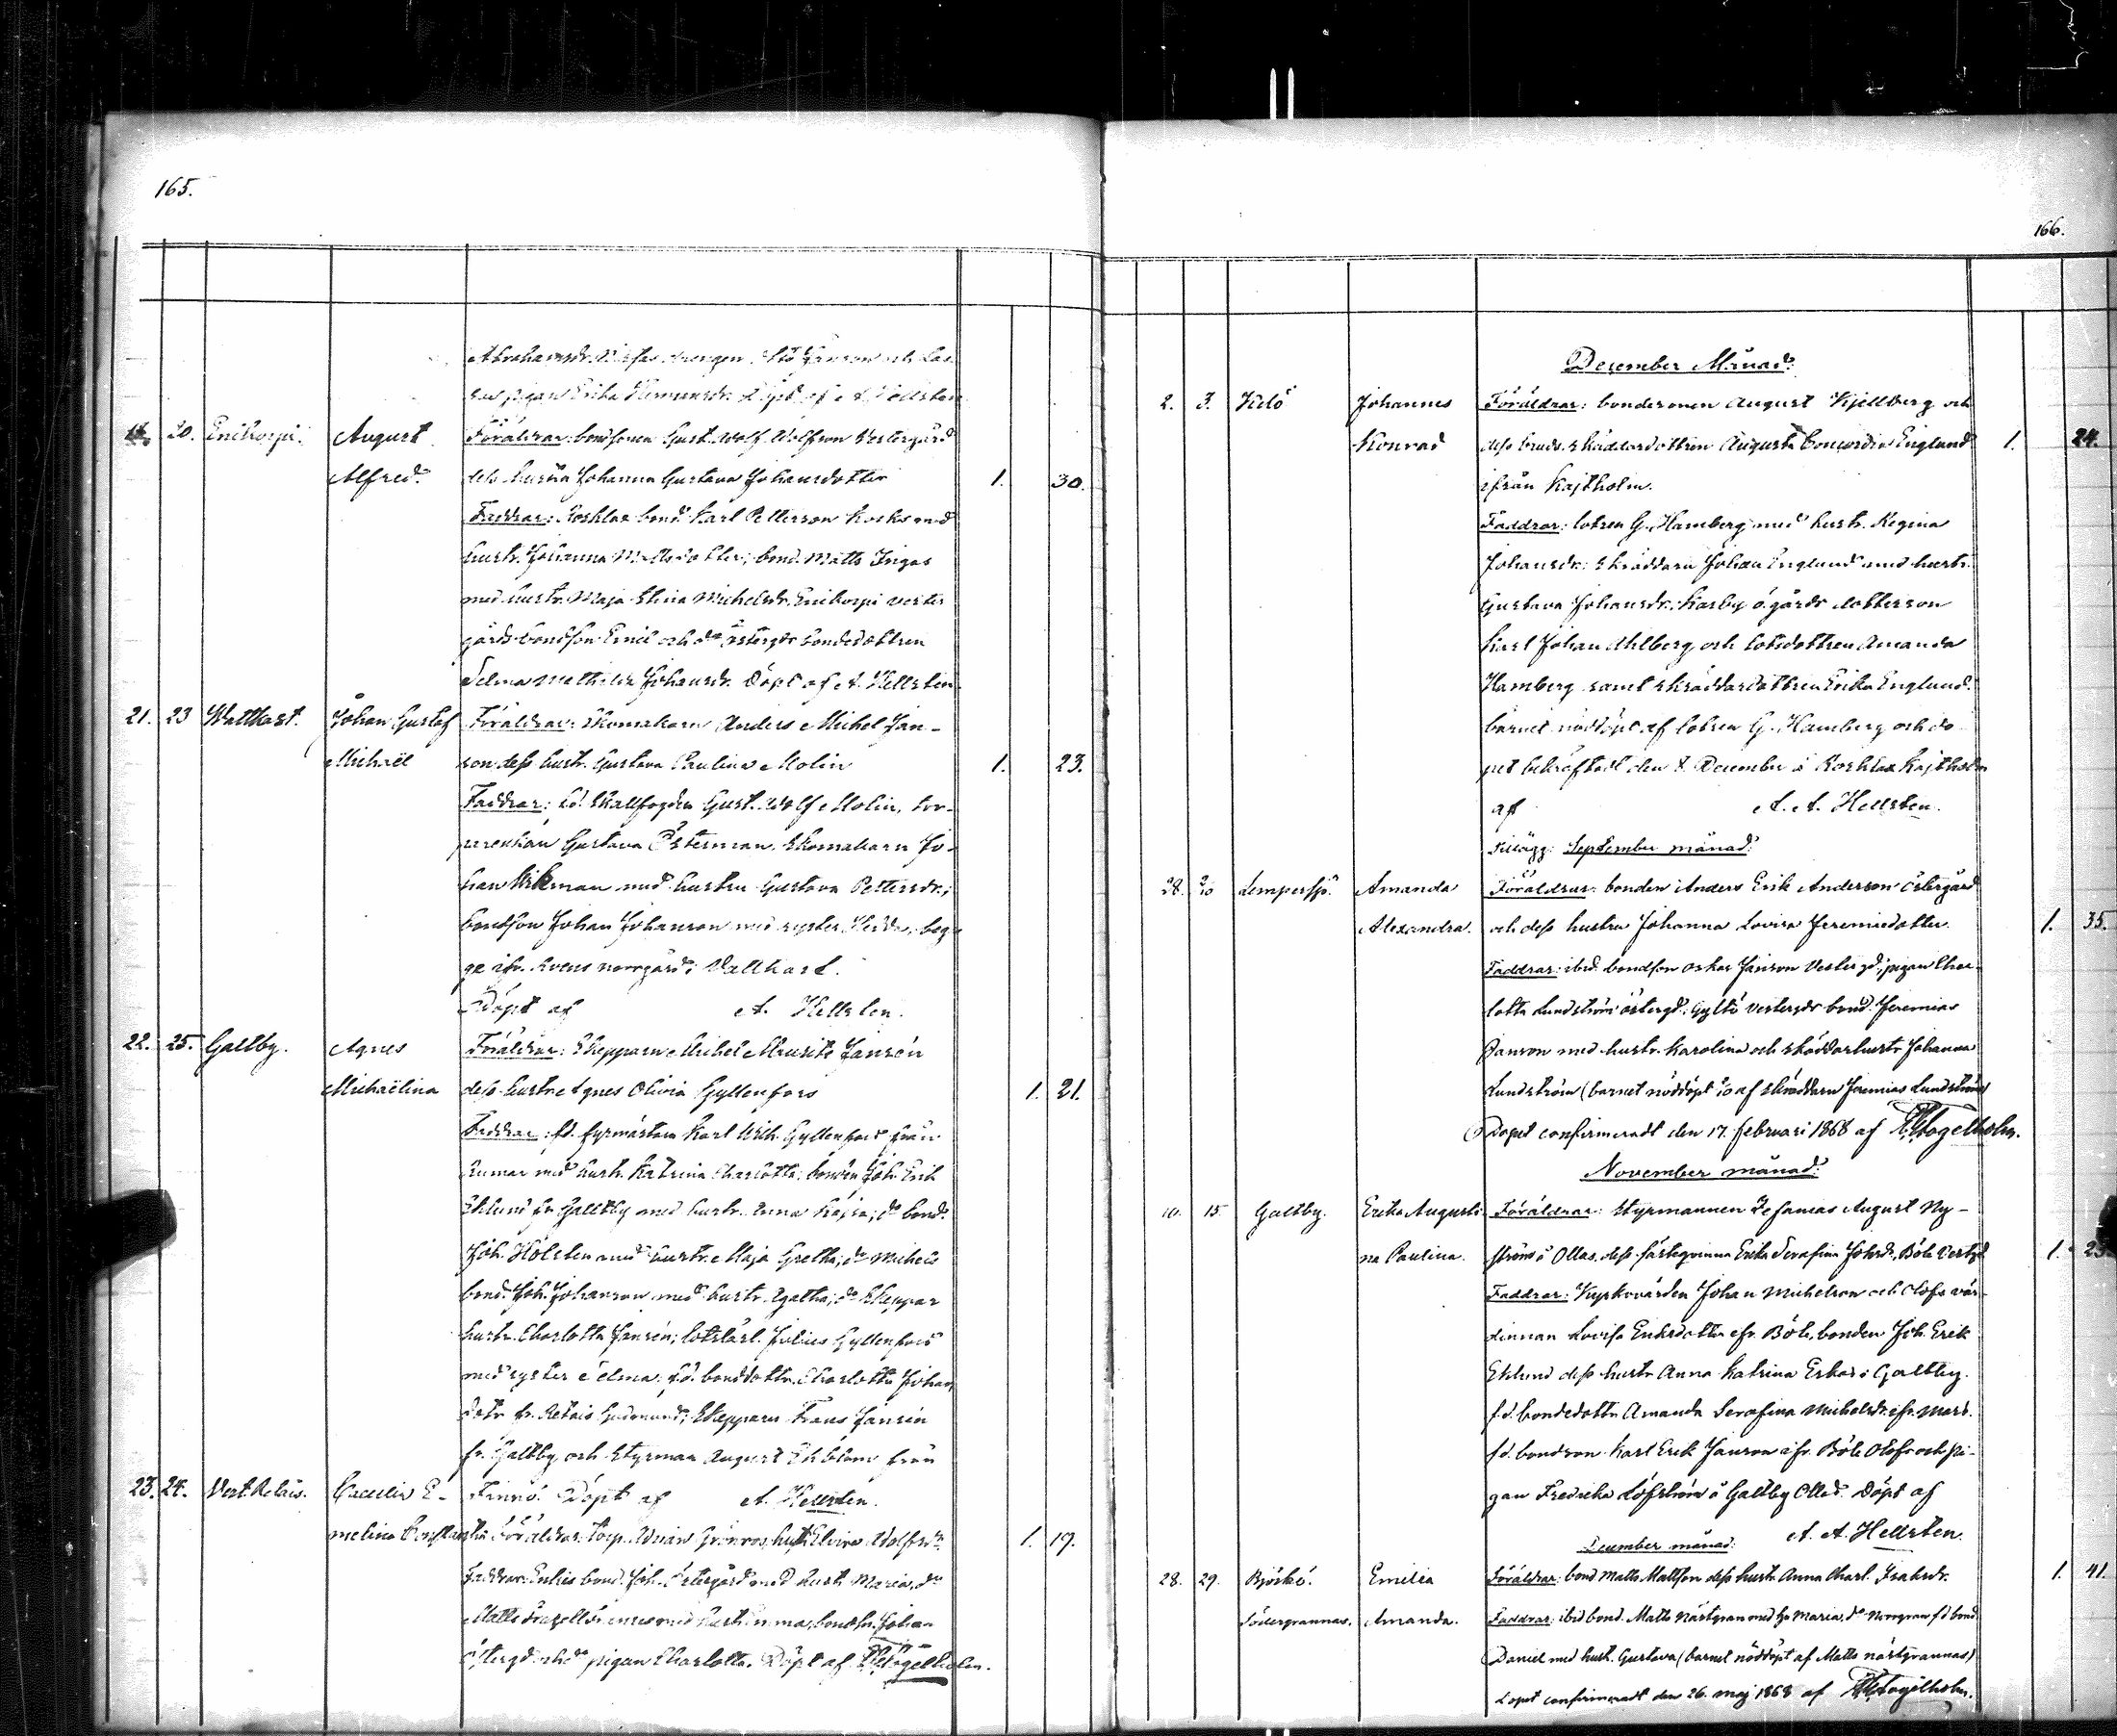 165.
Abrahamsdr.
pigan Erika Hermansdr. Döpt af A. Hellsten
20. Enikorpi. August Föräldrar: bondsonen Gust. Adolf Adolfson Vestergård
Alfred. dess hustru Johanna Gustava Johansdotter 1. 30.
Faddrar: Roshlax bond. Karl Petterson med
hustr. Johanna Mattsdotter; bond. Matts Ingas
med hustr. Maja Stina Michelsdr. Enikorpi vester
gårds bondson Emil och do östergdr bondedottren
Selma Mathilda Johansdr. Döpt af A. Hellsten
21. 23 Wattkast. Johan Gustaf Föräldrar: Skomakarn Anders Michel Jan-
Michaël son dess hustr. Gustava Paulina Molin 1. 23.
Faddrar: f.d. Skallfogden Gust. Adolf Molin, tor-
parenkan Gustava Österman, Skomakarn Jo-
han Wikman med hustru Gustava Pettersdr.;
bondson Johan Johanson med syster Hedda, beg-
ge ifr. norrgård i Vattkast.
Döpt af A. Hellsten.
22. 25. Galtby. Agnes Föräldrar: Skepparn Michel Mauritz Jansén
Michaëlina dess hustru Agnes Olivia Gyllenfors 1. 21.
Faddrar: f.d. fyrmästarn Karl Wilh. Gyllenfors från
med hustr. Katrina Charlotta; bonden Joh. Erik
Eklund fr Galtby med hustr. Anna Kajsa; do bond.
Joh. Holsten med hustru Maja Gretha; do Michels
bond. Joh. Johanson med hustr. Agatha; do Skeppar
hustr. Charlotta Jansén; lotslärl. Julius Gyllenfors
med syster Selma: f.d. bonddottr. Charlotta Johans
dotr fr. Retais Gudmunds; Skepparn Frans Jansén
fr. Galtby och Styrman August Ekblom från
23. 24. Vest. Retais. Caecilia E- Finnö. Döpt af A. Hellsten.
melina Constantia Föräldrar: torp. Adrian Grönroos, hust. Elvira Adolfsdr. 1. 19.
Faddrar: bond. Joh. Östergård med hustr. Maria, do
Matts med hustr. bondson Johan
östergd och do pigan Charlotta. Döpt af Fogelholm.
166.
December Månad:
2. 3. Kilö Johannes Föräldrar: bondesonen August Kjellberg och
Konrad dess brud. skräddardottren Augusta Concordia Englund 1. 24.
ifrån Kajtholm.
Faddrar: lotsen G. Hamberg med hustr. Regina
Johansdr.: skräddarn Johan Englund med hustr.
Gustava Johansdr.: Karby ö.gårds dotterson
Karl Johan Ahlberg och lotsdottren Amanda
Hamberg samt skräddardottren Erika Englund.
barnet nöddöpt af lotsen G. Hamberg och do-
pet bekräftadt den 8 December å Roshlax Kajtholm
af A. A. Hellsten.
Tillägg: September månad:
28. Lempersjö. Amanda Föräldrar: bonden Anders Erik Anderson Östergård
Alexandra. och dess hustru Johanna Lovisa Jeremiedotter. 1. 35.
Faddrar: ibid. bondson Oskar Janson Vestergd; pigan Char-
lotta Lundström östergd: Gyltö vestergdr bond. Jeremias
Janson med hustr. Karolina och skräddarhustr Johanna
Lundström (barnet nöddöpt af skräddarn Jeremias Lundström)
Dopet confirmeradt den 17. februari 1868 af Fogelholm.
November månad:
10. 15. Galtby. Erika Augusti- Föräldrar: Styrmannen Zefanias August Ny-
na Paulina. ström å Ollas, dess fästeqvinna Erika Serafina Johsdr. Böle Vestgd 1. 23
Faddrar: Kyrkovärden Johan Michelson och Olofs vär-
dinnan Lovisa Eriksdotter ifr. Böle, bonden Joh. Erik
Eklund dess hustr. Anna Katrina Eskas i Galtby.
f.d. bondedottr Amanda Serafina Michelsdr. ifr.
f.d. bondson Karl Erik Janson ifr. Böle Olofs och pi-
gan Fredrika Löfström å Galtby Ollas. Döpt af
A. A. Hellsten.
December månad:
28. 29. Björkö. Emilia Föräldrar: bond Matts Mattson dess hustr Anna Charl. Isaksdr. 1. 41.
Södergrannas. Amanda. Faddrar: ibid bond. Matts Nästgran med hu Maria, do Norrgran f.d bond.
Daniel med hust. Gustava (barnet nöddöpt af Matts nästgrannas)
Dopet confirmeradt den 26. maj 1868 af Fogelholm.